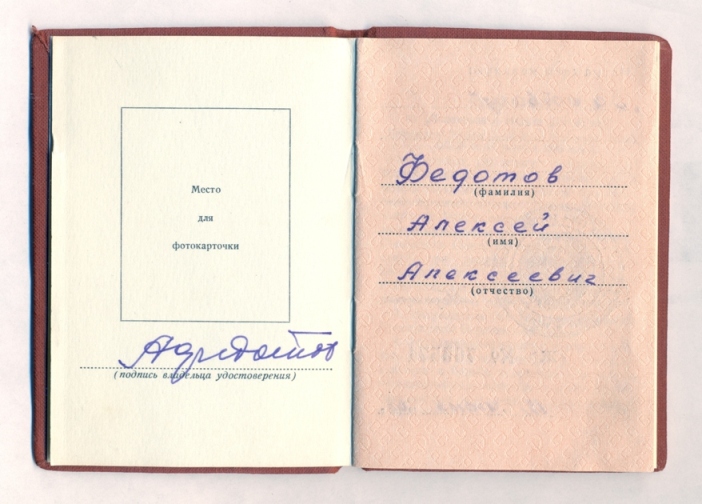 Место
для
фотокарточки
(подпись владельца удостоверения)
Федотов
(фамилия)
Алексей
(имя)
Алексеевич
(отчество)